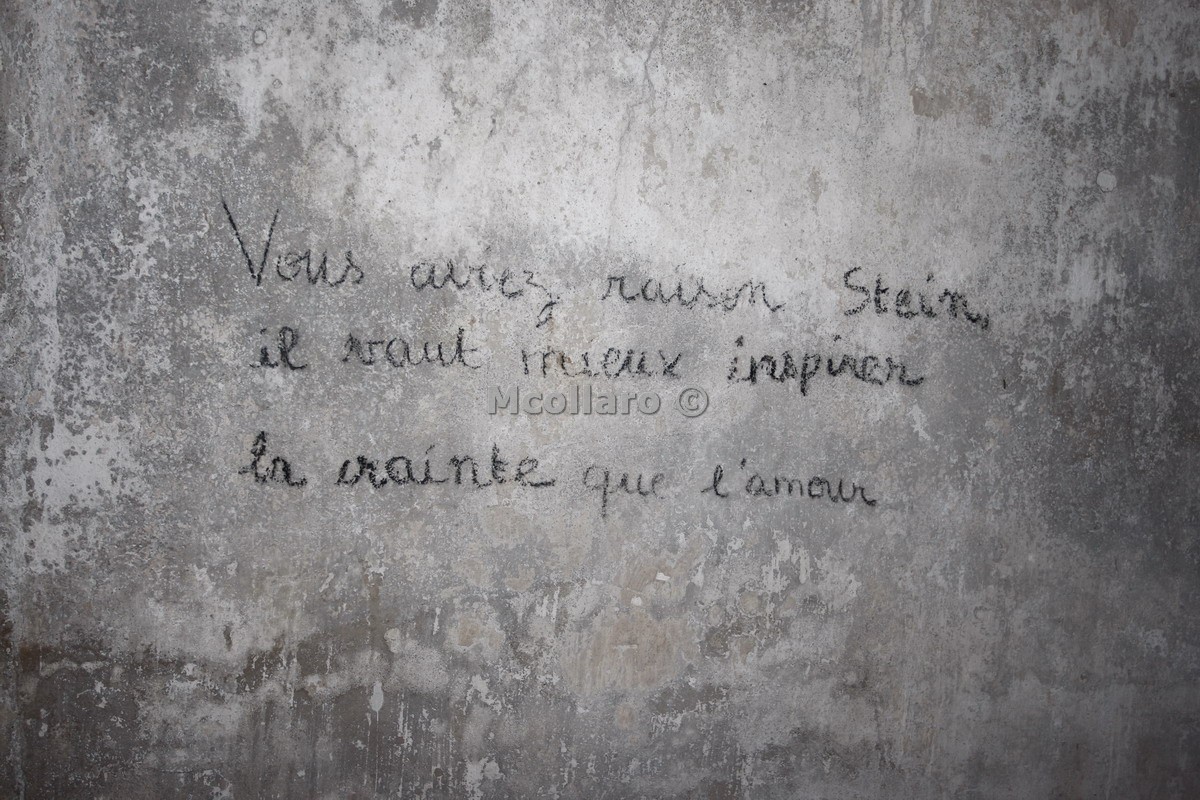 Vous aviez raison Stein,
il vaut mieux inspirer
Mcollaro ©
la crainte que l'amour